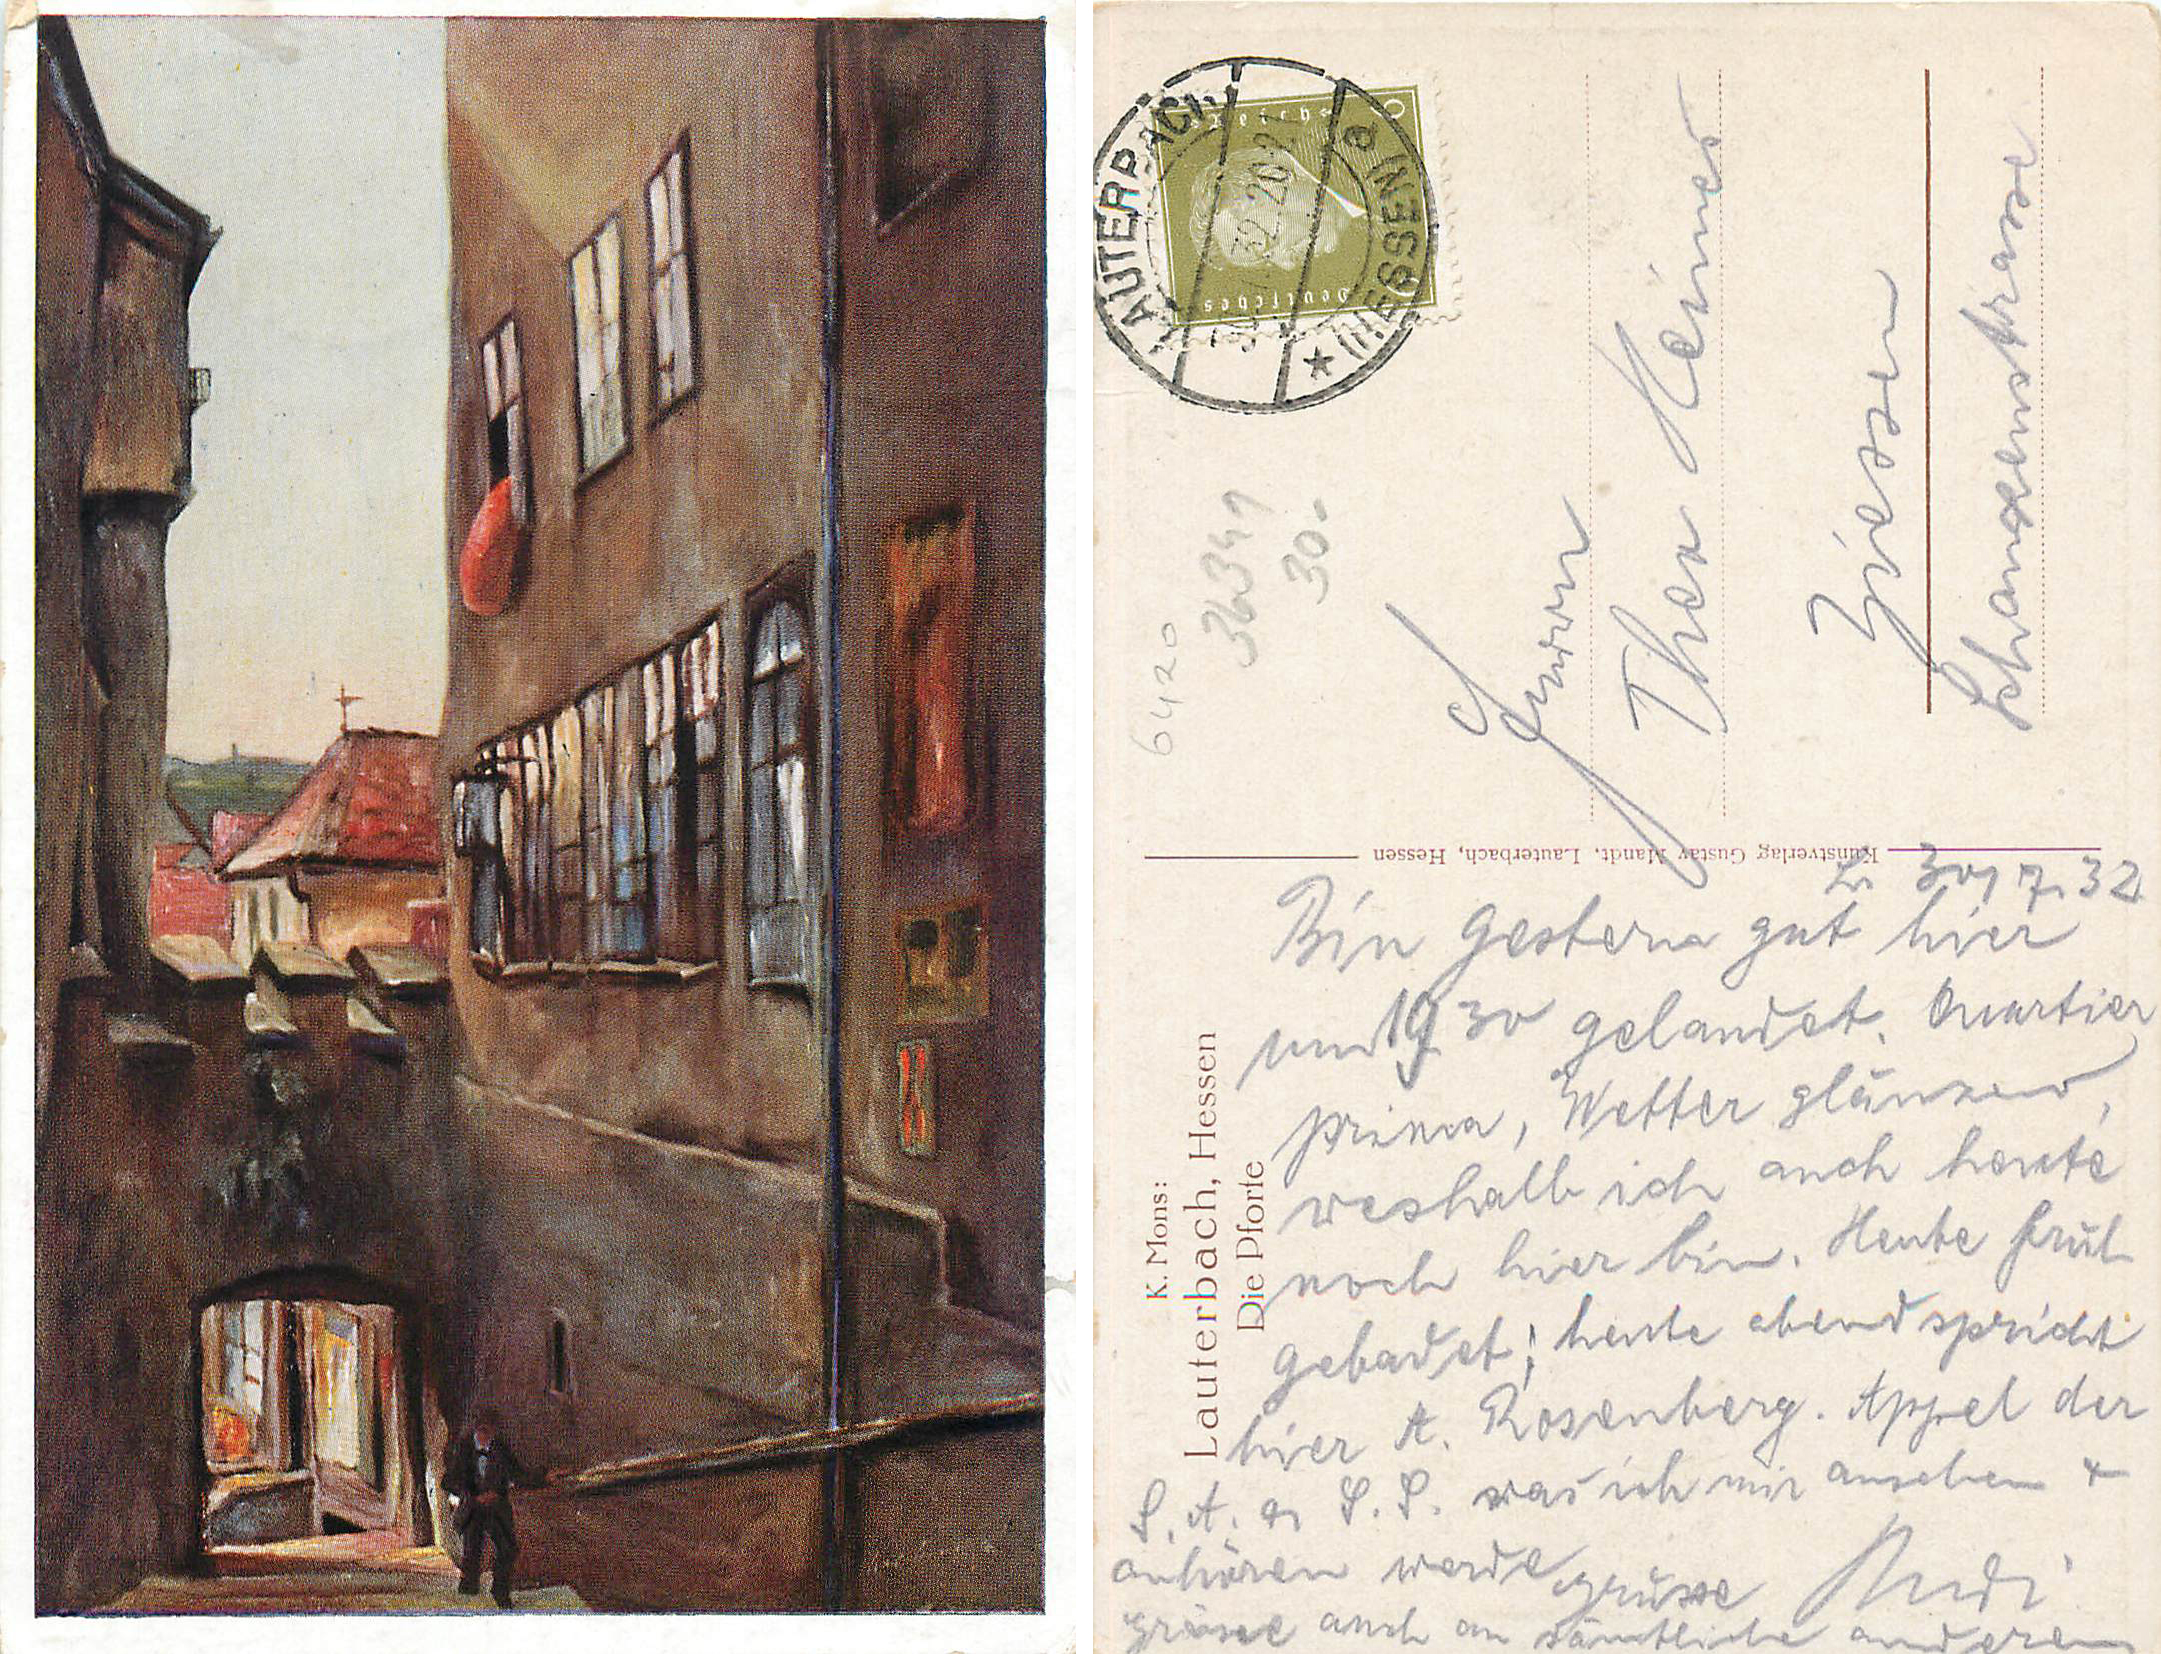 LAUTERBACH
(HESSEN) a
32. 20-2
Deutsches
6420
36349
30.-
Thea Heimes
Giessen
Schanzenstrasse
Kunstverlag Gustav Mandt, Lauterbach, Hessen
K. Mons:
Lauterbach, Hessen
Die Pforte
30/7.32
Bin gestern gut hier
um 19 30 gelandet. Quartier
prima, Wetter glänzend,
weshalb ich auch heute
noch hier bin. Heute früh
gebadet; heute abend spricht
hier A. Rosenberg. Appel der
S.A. S.S. was ich mir ansehen +
anhören werde Grüsse Rudi
Grüsse auch an sämtliche anderen